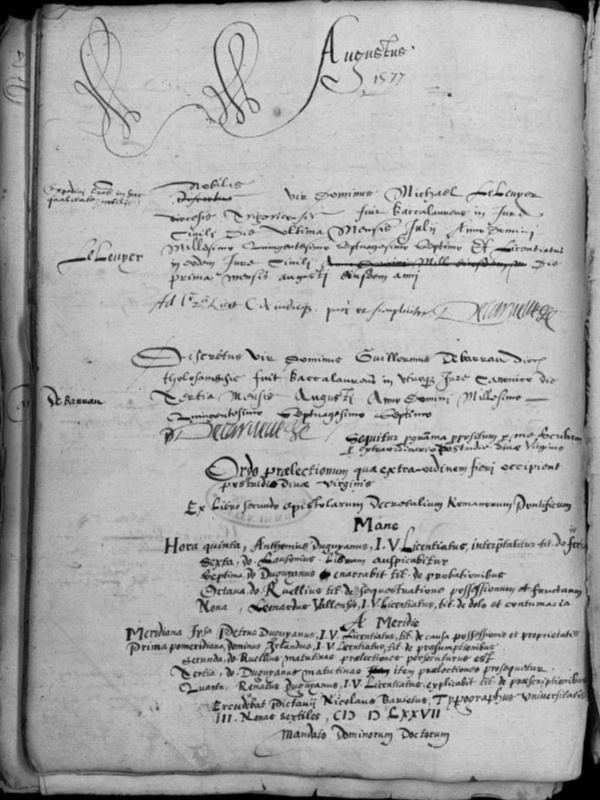 Augustus
1577
Nobilis
vir Dominus Michael LeLeuyer
diocesis Trigoricensis fuit baccalaureus in Jure
Civili Die ultima Mensis Julii Anno Domini
Millesimo Quingentesimo Septuagesimo Septimo Et Licentiatus
in eodem Jure Civili die
prima mensis augusti eiusdem anni
LeLeuyer
Discretus vir Dominus Guillermus Debarrau dioc
tholosansis fuit baccalaureus in utroq Jure Canonico die
Tertia Mensis Augusti Anno Domini Millesimo
Quingentesimo Septuagesimo Septimo
DeBarrau
Sequitur
extraordinario postridie Divae Virginis
Ordo praelectionum quae extra-ordinem fieri occipient
postridie Divae Virginis
Ex Libro secundo epistolarum Decretalium Romanorum Pontificum
Mane
Hora quinta, Anthonius Duguyanus, I. V Licentiatus, interptabitur tit. de feriis
Sexta, do. Lausonius. Librum auspicabitur
Septima, do Duguyanus enarrabit tit. de probationibus
Octava, do Ruellius tit. de sequestratione possessionum et fructuum
Nona, Leonardus Vallensis, I. V Licentiatus, tit. de dolo et contumacia
A Meridie
Meridiana Ipsa Petrus Duguyanus, I. V. Licentiatus, tit. de causa possessionis et proprietatis
Prima pomeridiana, dominus Irlandus, I. V Licentiatus, tit. de praesumptionibus
Secunda, do. Ruellius matutinas praelectiones
Tertia, do. Duguyanus matutinas item praelectiones prosequetur.
Quarta, Renatus Duguyanus, I. V. Licentiatus, explicabit tit. de praescriptionibus
Excudebat Pictavii Nicolaus Typographus Universitatis
III. Nonas sextiles, CIƆ IƆ LXXVII
Mandato Dominorum Doctorum